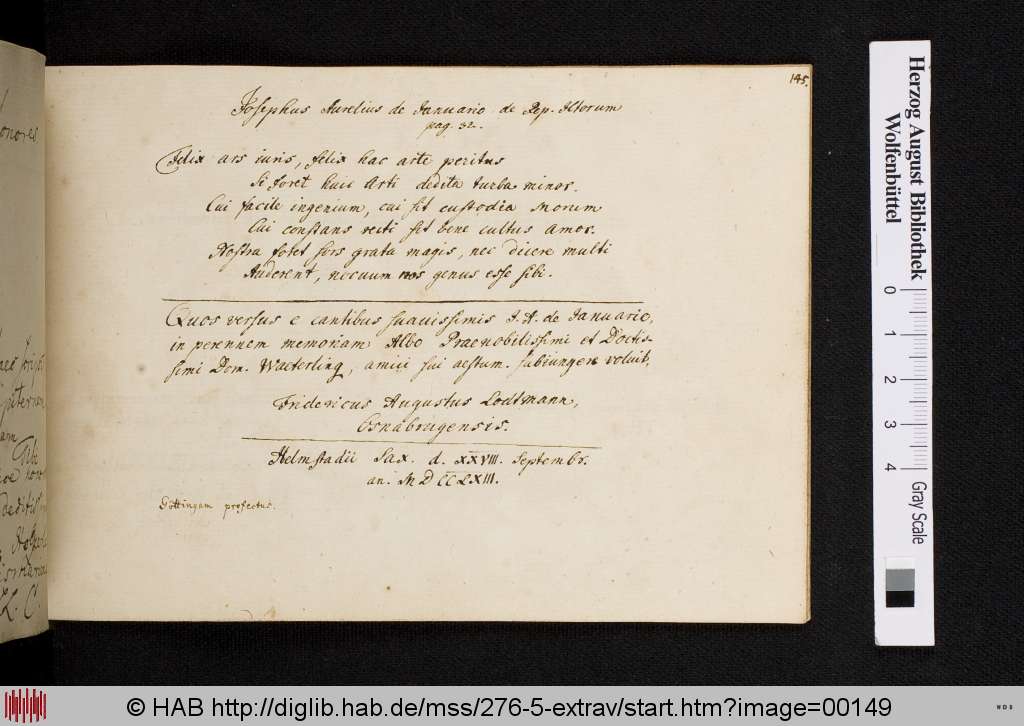 145.
Josephus Aurelius de Januario de Rep. Ictorum
pag. 32.
Felix ars iuris, felix hac arte peritus
Si foret huic Arti dedita turba minor.
Cui facile ingenium, cui sit custodia morum
Cui constans recti sit bene cultus amor.
Nostra foret sors grata magis, nec dicere multi
Auderent, nocuum nos genus esse sibi.
Quos versus e cantibus suavissimis J. A. de Januario,
in perennem memoriam Albo Praenobilissimi et Doctis-
simi Dom. Waeterling, amici sui aestum. subiungere voluit,
Fridericus Augustus Lodtmann,
Osnabrugensis.
Helmstadii Sax. d. XXVIII. Septembr.
an. MDCCLXIII.
Göttingam profectus.
onores
Tibi
deditis
L. C.
Herzog August Bibliothek
Wolfenbüttel
0 1 2 3 4
Gray Scale
© HAB http://diglib.hab.de/mss/276-5-extrav/start.htm?image=00149
WDB